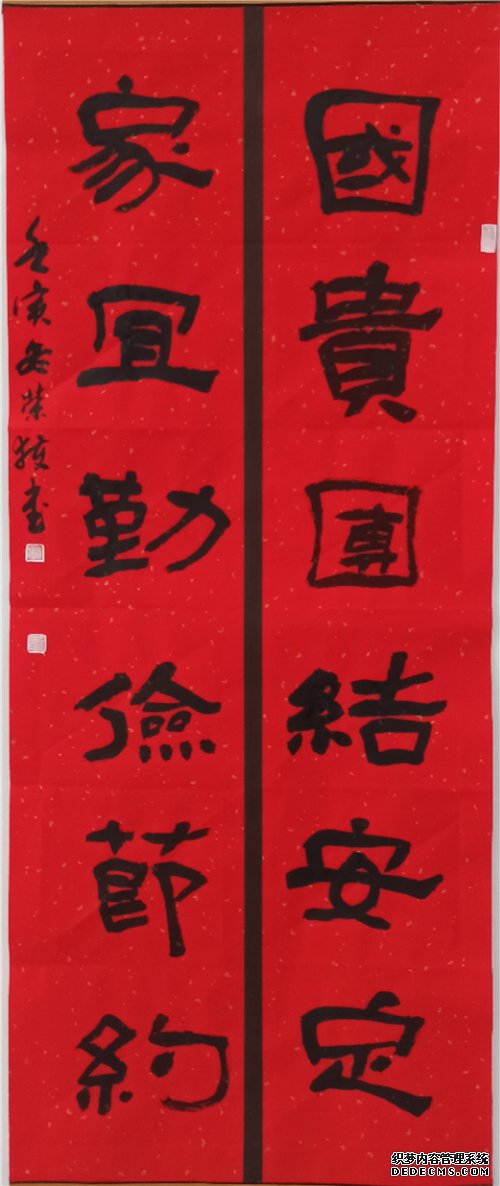 國貴團結安定
家宜勤儉節約
壬寅冬榮技書
织梦内容管理系统
DEDECMS.COM